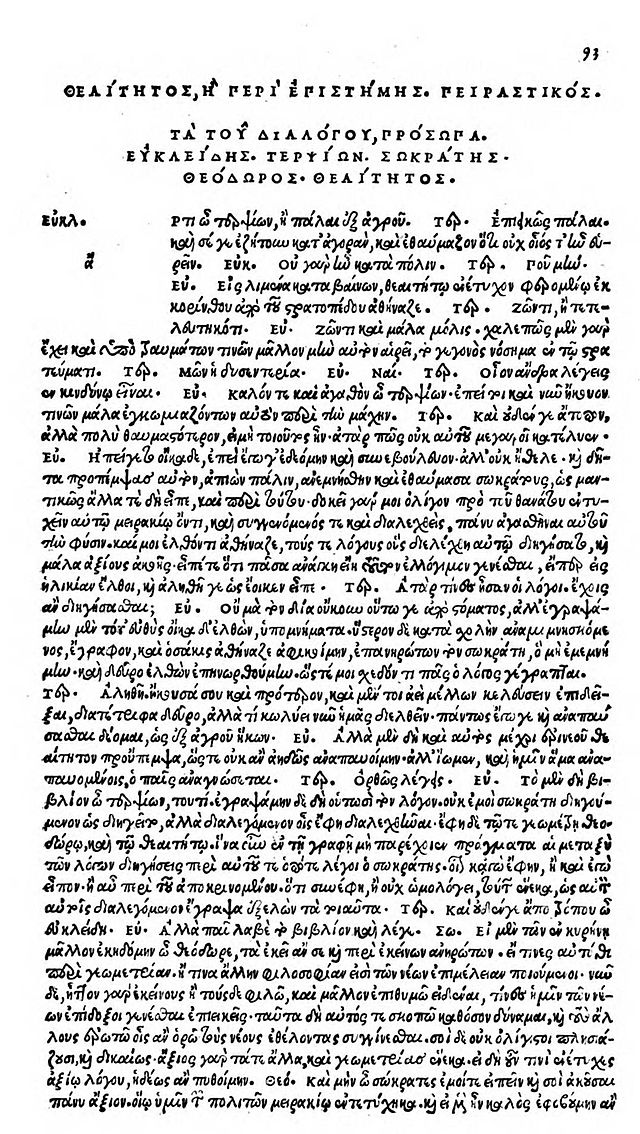 93
ΘΕΑΊΤΗΤΟΣ, Ἢ ΠΕΡΙ' ἘΠΙΣΤΉΜΗΣ. ΠΕΙΡΑΣΤΙΚΌΣ.
ΤΑ' ΤΟΥ͂ ΔΙΑΛΌΓΟΥ, ΠΡΌΣΩΠΑ.
ΕΥ̓ΚΛΕΊΔΗΣ. ΤΕΡΨΊΩΝ. ΣΩΚΡΆΤΗΣ.
ΘΕΌΔΩΡΟΣ. ΘΕΑΊΤΗΤΟΣ.
Εὐκλ. Ρτι ὦ τερψίων, ἢ πάλαι ἐξ ἀγροῦ. Τερ. Ἐπιεικῶς πάλαι.
καὶ σέ γε ἐζήτουν κατ' ἀγορὰν, καὶ ἐθαύμαζον ὅτι οὐχ οἷός τ' ἦν εὑ-
ἄ ρεῖν. Εὐκ. Οὐ γὰρ ἦν κατὰ πόλιν. Τερ. Ποῦ μήν.
Εὐ. Εἰς λιμένα καταβαίνων, θεαιτήτῳ ἐνέτυχον φερομένῳ ἐκ
κορίνθου ἀπὸ τοῦ στρατοπέδου ἀθήναζε. Τερ. Ζῶντι, ἢ τετε-
λευτηκότι. Εὐ. Ζῶντι καὶ μάλα μόλις. χαλεπῶς μὲν γὰρ
ἔχει καὶ ὑπὸ τραυμάτων τινῶν μᾶλλον μὴν αὐτὸν αἱρεῖ, τὸ γεγονὸς νόσημα ἐν τῷ στρα
τεύματι. Τερ. Μῶν ἡ δυσεντερία. Εὐ. Ναί. Τερ. Οἷον ἄνδρα λέγεις
ἐν κινδύνῳ εἶναι. Εὐ. Καλόν τε καὶ ἀγαθὸν ὦ τερψίων. ἐπεί τοι καὶ νῦν ἤκουον
τινῶν μάλα ἐγκωμιαζόντων αὐτὸν περὶ τὴν μάχην. Τερ. Καὶ οὐδέν γε ἄτοπον,
ἀλλὰ πολὺ θαυμασότερον, εἰ μὴ τοιοῦτος ἦν. ἀτὰρ πῶς οὐκ αὐτοῦ μεγαροῖ κατέλυεν.
Εὐ. Ηπείγετο οἴκαδε, ἐπεὶ ἔγωγ' ἐδεόμην καὶ συνεβούλευον. ἀλλ' οὐκ ἤθελε. καὶ δῆ-
τα προπέμψας αὐτὸν, ἀπιὼν πάλιν, ἀνεμνήσθην καὶ ἐθαύμασα σωκράτους, ὡς μαν-
τικῶς ἄλλα τε δὴ εἶπε, καὶ περὶ τούτου. δοκεῖ γάρ μοι ὀλίγον πρὸ τοῦ θανάτου ἐντυ-
χεῖν αὐτῷ μειρακίῳ ὄντι, καὶ συγγενόμενός τε καὶ διαλεχθεὶς, πάνυ ἀγασθῆναι αὐτοῦ
τὴν φύσιν. καί μοι ἐλθόντι ἀθήναζε, τούς τε λόγους οὓς διελέχθη αὐτῷ διηγήσατο, καὶ
μάλα ἀξίους ἀκοῆς. εἶπέ τε ὅτι πᾶσα ἀνάγκη εἴη τοῦτον ἐλλόγιμον γενέσθαι, εἴπερ εἰς
ἡλικίαν ἔλθοι, καὶ ἀληθῆ γε ὡς ἔοικεν εἶπε. Τερ. Ἀτὰρ τίνες ἦσαν οἱ λόγοι. ἔχοις
ἂν διηγήσασθαι; Εὐ. Οὐ μὰ τὸν δία οὔκουν οὕτω γε ἀπὸ στόματος, ἀλλ' ἐγραψά-
μην μὲν τότ' εὐθὺς οἴκαδ' ἐλθὼν, ὑπομνήματα. ὕστερον δὲ κατὰ σχολὴν ἀναμιμνησκόμε
νος, ἔγραφον, καὶ ὁσάκις ἀθήναζε ἀφικοίμην, ἐπανηρώτων τὸν σωκράτη, ὃ μὴ ἐμεμνή
μην. καὶ δεῦρο ἐλθὼν ἐπηνωρθούμην. ὥστέ μοι σχεδόν τι πᾶς ὁ λόγος γέγραπται.
Τερ. Ἀληθῆ. ἤκουσά σου καὶ πρότερον, καὶ μέν τοι ἀεὶ μέλλων κελεύσειν ἐπιδεῖ-
ξαι, διατέτριφα δεῦρο, ἀλλὰ τί κωλύει νῦν ἡμᾶς διελθεῖν. πάντως ἔγωγε καὶ ἀναπαύ
σασθαι δέομαι, ὡς ἐξ ἀγροῦ ἥκων. Εὐ. Ἀλλὰ μὲν δὴ καὶ αὐτὸς μέχρι ἐρινεοῦ θε
αίτητον προὔπεμψα, ὥστε οὐκ ἂν ἀηδῶς ἀναπαυοίμην. ἀλλ' ἴωμεν, καὶ ἡμῖν ἅμα ἀνα-
παυομένοις, ὁ παῖς ἀναγνώσεται. Τερ. Ὀρθῶς λέγεις. Εὐ. Τὸ μὲν δὴ βι-
βλίον ὦ τερψίων, τουτί. ἐγραψάμην δὲ δὴ οὑτωσὶ τὸν λόγον. οὐκ ἐμοὶ σωκράτη διηγού-
μενον ὡς διηγεῖτο, ἀλλὰ διαλεγόμενον οἷς ἔφη διαλεχθῆναι. ἔφη δὲ τῷ τε γεωμέτρῃ θεο-
δώρῳ, καὶ τῷ θεαιτήτῳ. ἵνα οὖν ἐν τῇ γραφῇ μὴ παρέχοιεν πράγματα αἱ μεταξὺ
τῶν λόγων διηγήσεις περὶ αὐτοῦ τε ὁπότε λέγοι ὁ σωκράτης. οἷον κἀγὼ ἔφην, ἢ καὶ ἐγὼ
εἶπον. ἢ αὖ περὶ τοῦ ἀποκρινομένου. ὅτι συνέφη, ἢ οὐχ ὡμολόγει, τούτων ἕνεκα, ὡς αὐτὸν
αὐτοῖς διαλεγόμενον ἔγραψα ἐξελὼν τὰ τοιαῦτα. Τερ. Καὶ οὐδέν γε ἄπο τρόπου ὦ
εὐκλείδη. Εὐ. Ἀλλὰ παῖ λαβὲ τὸ βιβλίον καὶ λέγε. Σω. Εἰ μὲν τῶν ἐν κυρήνῃ
μᾶλλον ἐκηδόμην ὦ θεόδωρε, τὰ ἐκεῖ ἄν σε καὶ περὶ ἐκείνων ἀνηρώτων. εἴ τινες αὐτόθι
περὶ γεωμετρίαν. ἤ τινα ἄλλην φιλοσοφίαν εἰσὶ τῶν νέων ἐπιμέλειαν ποιούμενοι. νῦν
δὲ, ἧττον γὰρ ἐκείνους ἢ τούσδε φιλῶ, καὶ μᾶλλον ἐπιθυμῶ εἰδέναι, τίνες ἡμῖν τῶν νέ-
ων ἐπίδοξοι γενέσθαι ἐπιεικεῖς. ταῦτα δὴ αὐτός τε σκοπῶ καθόσον δύναμαι, καὶ τοὺς ἄλ
λους ἐρωτῶ οἷς ἂν ὁρῶ τοὺς νέους ἐθέλοντας συγγίνεσθαι. σοὶ δὲ οὐκ ὀλίγιστοι πλησιά-
ζουσι, καὶ δικαίως. ἄξιος γὰρ τά τε ἄλλα, καὶ γεωμετρίας ἕνεκα. εἰ δὴ οὖν τινὶ ἐνέτυχες
ἀξίῳ λόγου, ἡδέως ἂν πυθοίμην. Θεό. Καὶ μὴν ὦ σώκρατες ἐμοί τε εἰπεῖν καὶ σοὶ ἀκοῦσαι
πάνυ ἄξιον. οἵῳ ὑμῖν τῶν πολιτῶν μειρακίῳ ἐντετύχηκα. καὶ εἰ μὲν ἦν καλὸς ἐφοβούμην ἂν